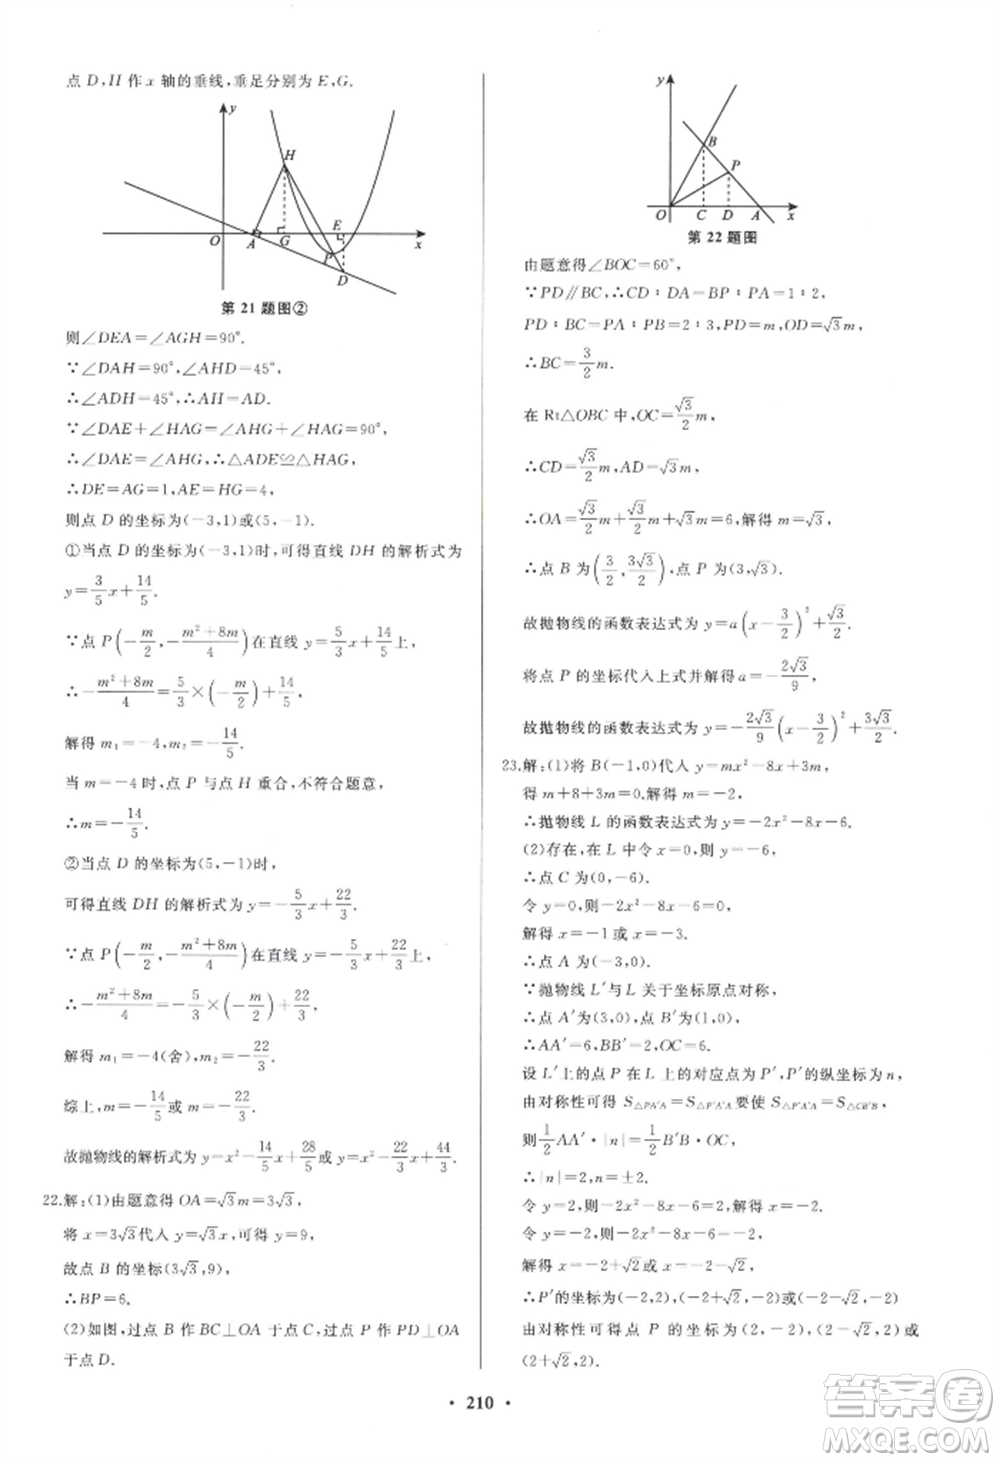 点 D,H 作 x 轴的垂线,垂足分别为 E,G.
y
H
E
O
A
G
x
P
D
第 21 题图②
则∠DEA=∠AGH=90°.
∵∠DAH=90°,∠AHD=45°,
∴∠ADH=45°,∴AH=AD.
∵∠DAE+∠HAG=∠AHG+∠HAG=90°,
∴∠DAE=∠AHG,∴△ADE≌△HAG,
∴DE=AG=1,AE=HG=4,
则点 D 的坐标为(-3,1)或(5,-1).
①当点 D 的坐标为(-3,1)时,可得直线 DH 的解析式为
y=3/5x+14/5.
∵点 P(-m/2,-(m²+8m)/4)在直线 y=5/3x+14/5上,
∴-(m²+8m)/4=5/3×(-m/2)+14/5.
解得 m₁=-4,m₂=-14/5.
当 m=-4时,点 P 与点 H 重合,不符合题意,
∴m=-14/5.
②当点 D 的坐标为(5,-1)时,
可得直线 DH 的解析式为 y=-5/3x+22/3.
∵点 P(-m/2,-(m²+8m)/4)在直线 y=-5/3x+22/3上,
∴-(m²+8m)/4=-5/3×(-m/2)+22/3.
解得 m₁=-4(舍),m₂=-22/3.
综上,m=-14/5或 m=-22/3.
故抛物线的解析式为 y=x²-14/5x+28/5或 y=x²-22/3x+44/3.
22.解:(1)由题意得 OA=√3m=3√3,
将 x=3√3代人 y=√3x,可得 y=9,
故点 B 的坐标(3√3,9),
∴BP=6.
(2)如图,过点 B 作 BC⊥OA 于点 C,过点 P 作 PD⊥OA
于点 D.
y
B
P
O
C
D
A
x
第 22 题图
由题意得∠BOC=60°,
∵PD∥BC,∴CD∶DA=BP∶PA=1∶2,
PD∶BC=PA∶PB=2∶3,PD=m,OD=√3m,
∴BC=3/2m.
在 Rt△OBC 中,OC=√3/2m,
∴CD=√3/2m,AD=√3m,
∴OA=√3/2m+√3/2m+√3m=6,解得 m=√3,
∴点 B 为(3/2,3√3/2),点 P 为(3,√3).
故抛物线的函数表达式为 y=a(x-3/2)²+√3/2.
将点 P 的坐标代入上式并解得 a=-2√3/9,
故抛物线的函数表达式为 y=-2√3/9(x-3/2)²+3√3/2.
23.解:(1)将 B(-1,0)代人 y=mx²-8x+3m,
得 m+8+3m=0.解得 m=-2,
∴抛物线 L 的函数表达式为 y=-2x²-8x-6.
(2)存在,在 L 中令 x=0,y=-6,
∴点 C 为(0,-6),
令 y=0,则-2x²-8x-6=0,
解得 x=-1或 x=-3.
∴点 A 为(-3,0),
∵抛物线 L′与 L 关于坐标原点对称,
∴点 A′为(3,0),点 B′为(1,0),
∴AA′=6,BB′=2,OC=6.
设 L′上的点 P 在 L 上的对应点为 P′,P′的纵坐标为 n,
由对称性可得 S△PA′A=S△P′A′A 要使 S△P′A′A=S△CB′B,
则1/2AA′·|n|=1/2B′B·OC,
∴|n|=2,n=±2.
令 y=2,则-2x²-8x-6=2,解得 x=-2,
令 y=-2,则-2x²-8x-6=-2,
解得 x=-2+√2或 x=-2-√2,
∴P′的坐标为(-2,2),(-2+√2,-2)或(-2-√2,-2)
由对称性可得点 P 的坐标为(2,-2),(2-√2,2)或
(2+√2,2).
· 210 ·
答案圈
MXQE.COM